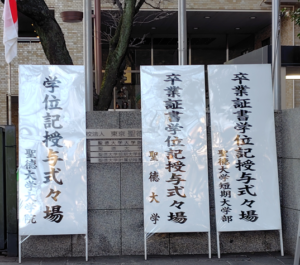 学位記授与式々場
聖徳大学大学院
卒業証書学位記授与式々場
聖徳大学
卒業証書学位記授与式々場
聖徳大学短期大学部